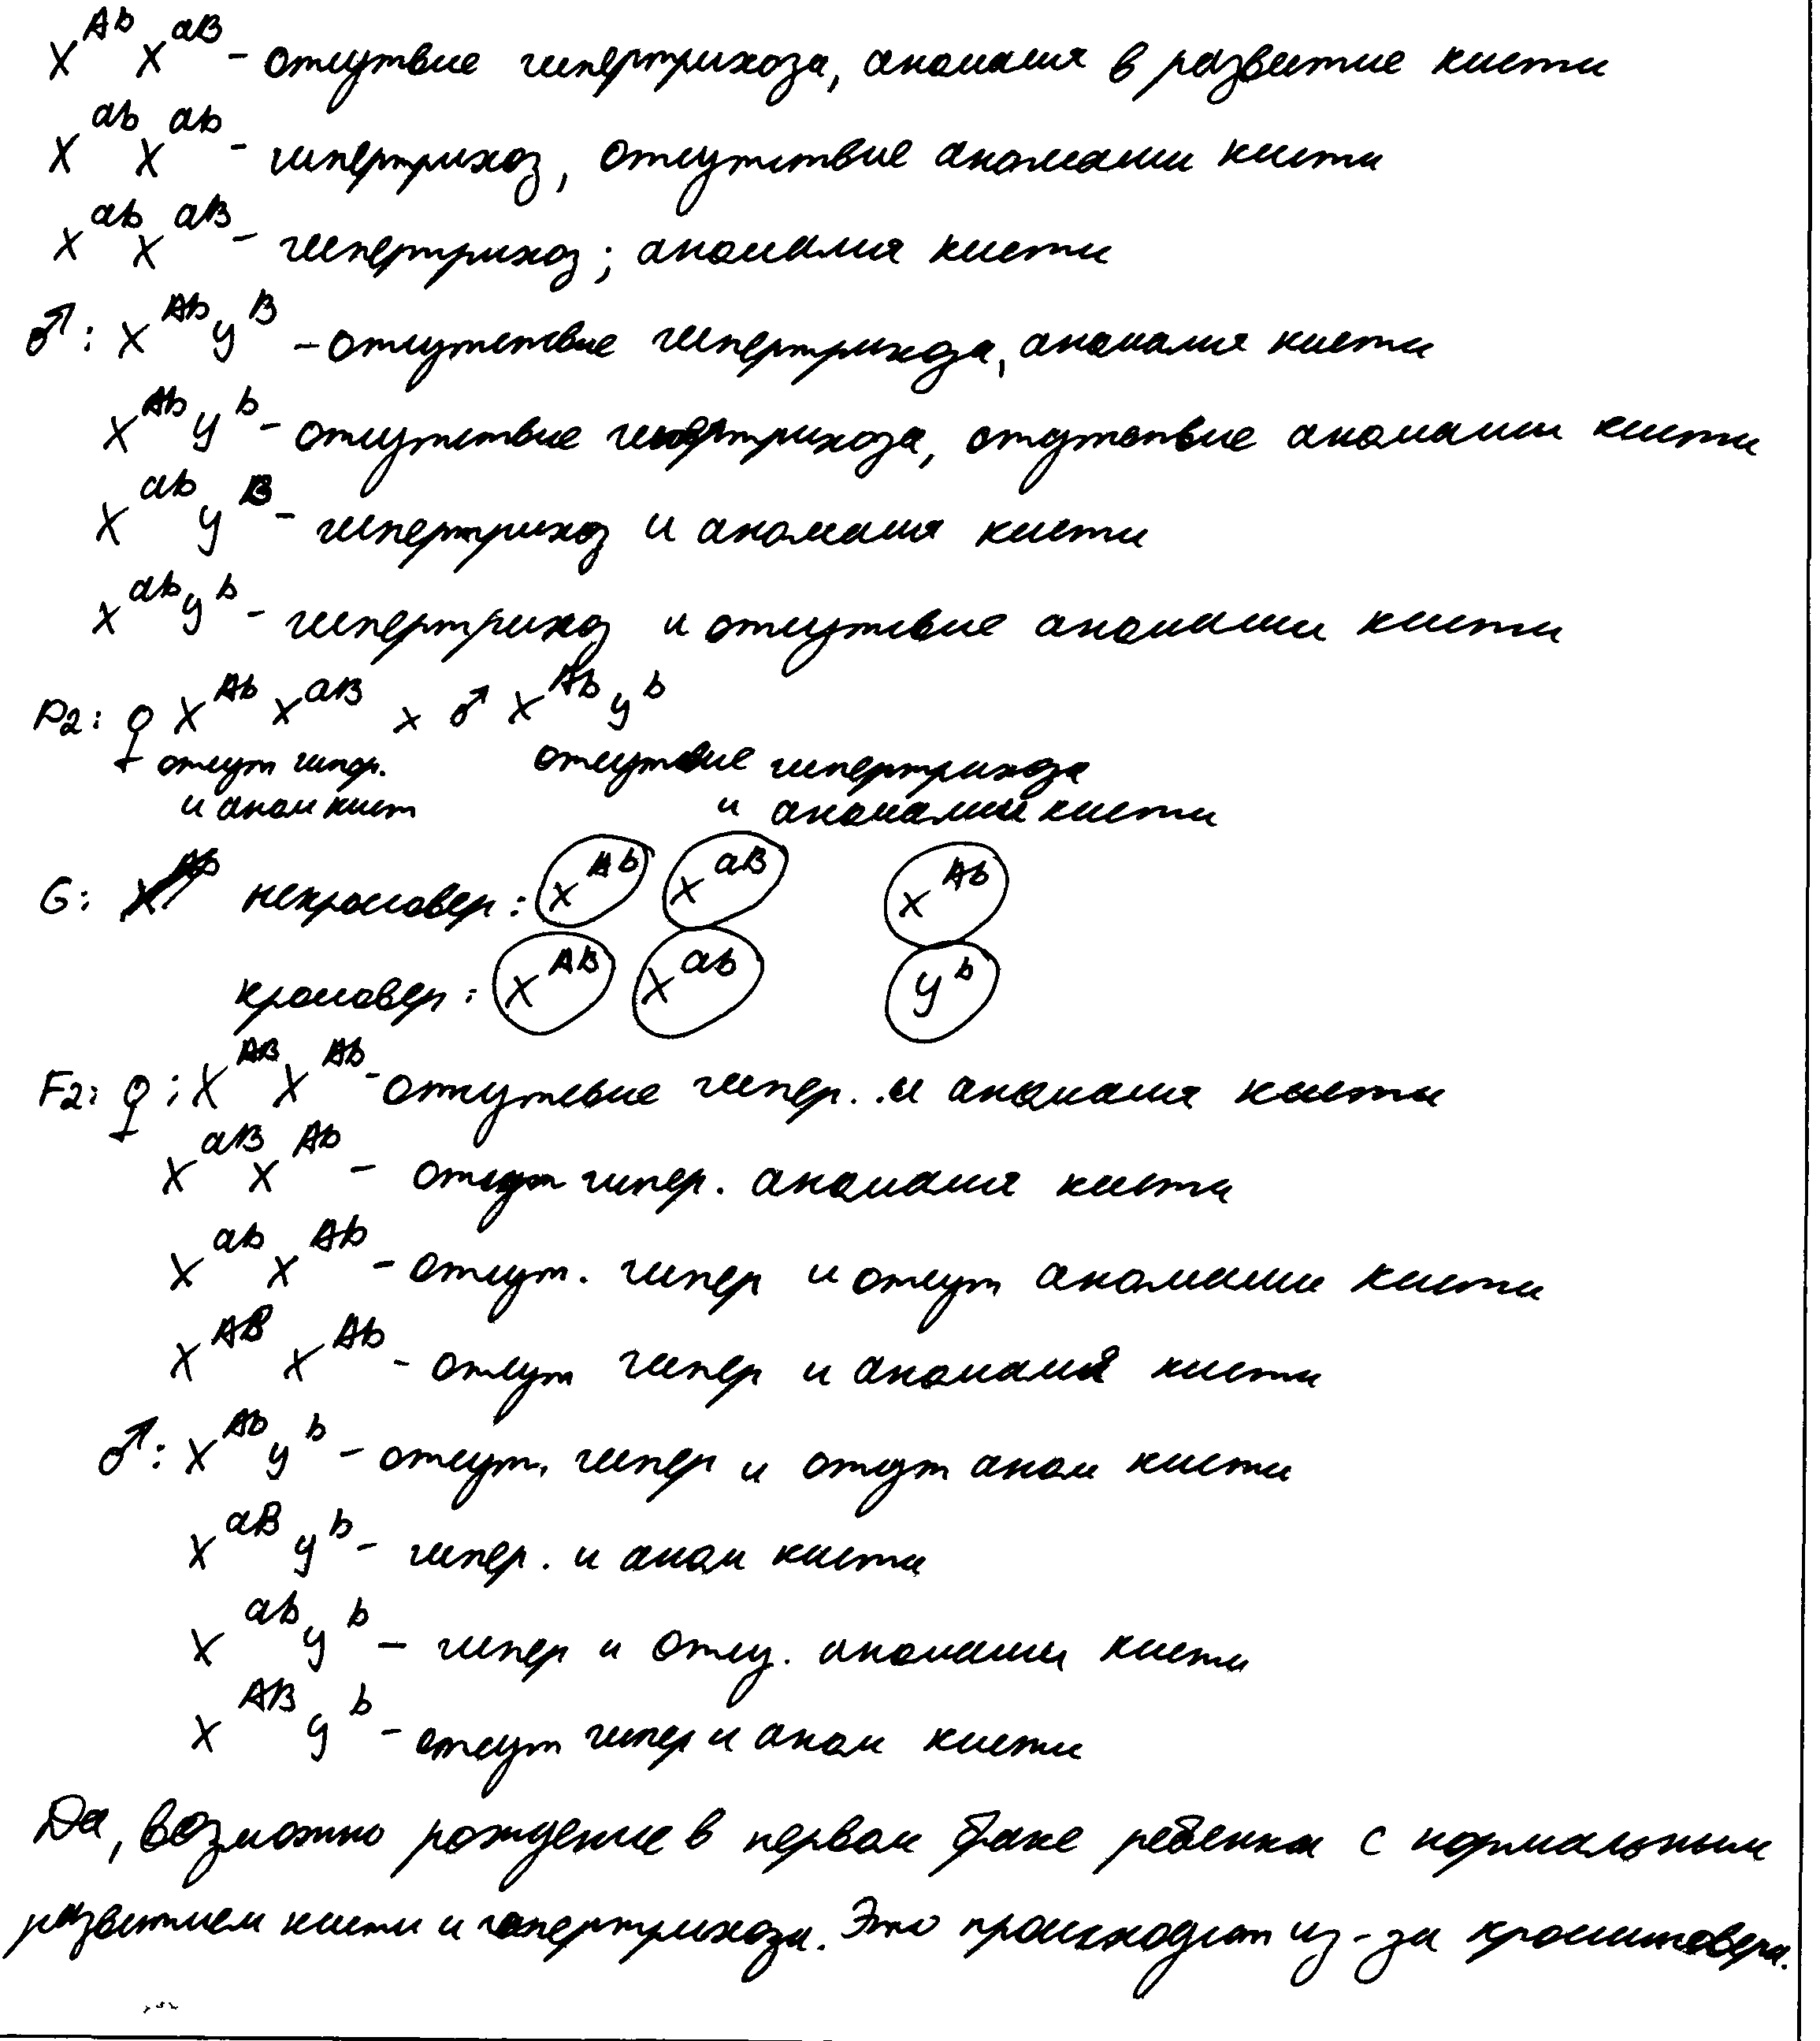 X^Ab X^aB - отсутвие гипертрихоза, аномалия в развитие кисти
X^ab X^ab - гипертрихоз, отсутствие аномалии кисти
X^ab X^aB - гипертрихоз; аномалия кисти
♂: X^Ab y^B - отсутствие гипертрихоза, аномалия кисти
X^Ab y^b - отсутствие гипертрихоза, отсутствие аномалии кисти
X^ab y^B - гипертрихоз и аномалия кисти
X^ab y^b - гипертрихоз и отсутвие аномалии кисти
P2: ♀ X^Ab X^aB x ♂ X^Ab y^b
отсут гипер. отсутвие гипертрихоза
и аном кист и аномалии кисти
G: некроссовер: X^Ab X^aB X^Ab
кроссовер: X^AB X^ab y^b
F2: ♀: X^AB X^Ab - отсутсвие гипер. и аномалия кисти
X^aB X^Ab - отсут гипер. аномалия кисти
X^ab X^Ab - отсут. гипер и отсут аномалии кисти
X^AB X^Ab - отсут гипер и аномалия кисти
♂: X^Ab y^b - отсут. гипер и отсут аном кисти
X^aB y^b - гипер. и аном кисти
X^ab y^b - гипер и отсу. аномалии кисти
X^AB y^b - отсут гипер и аном кисти
Да, возможно рождение в первом браке ребенка с нормальным
развитием кисти и гипертрихоза. Это происходит из-за кроссинговера.